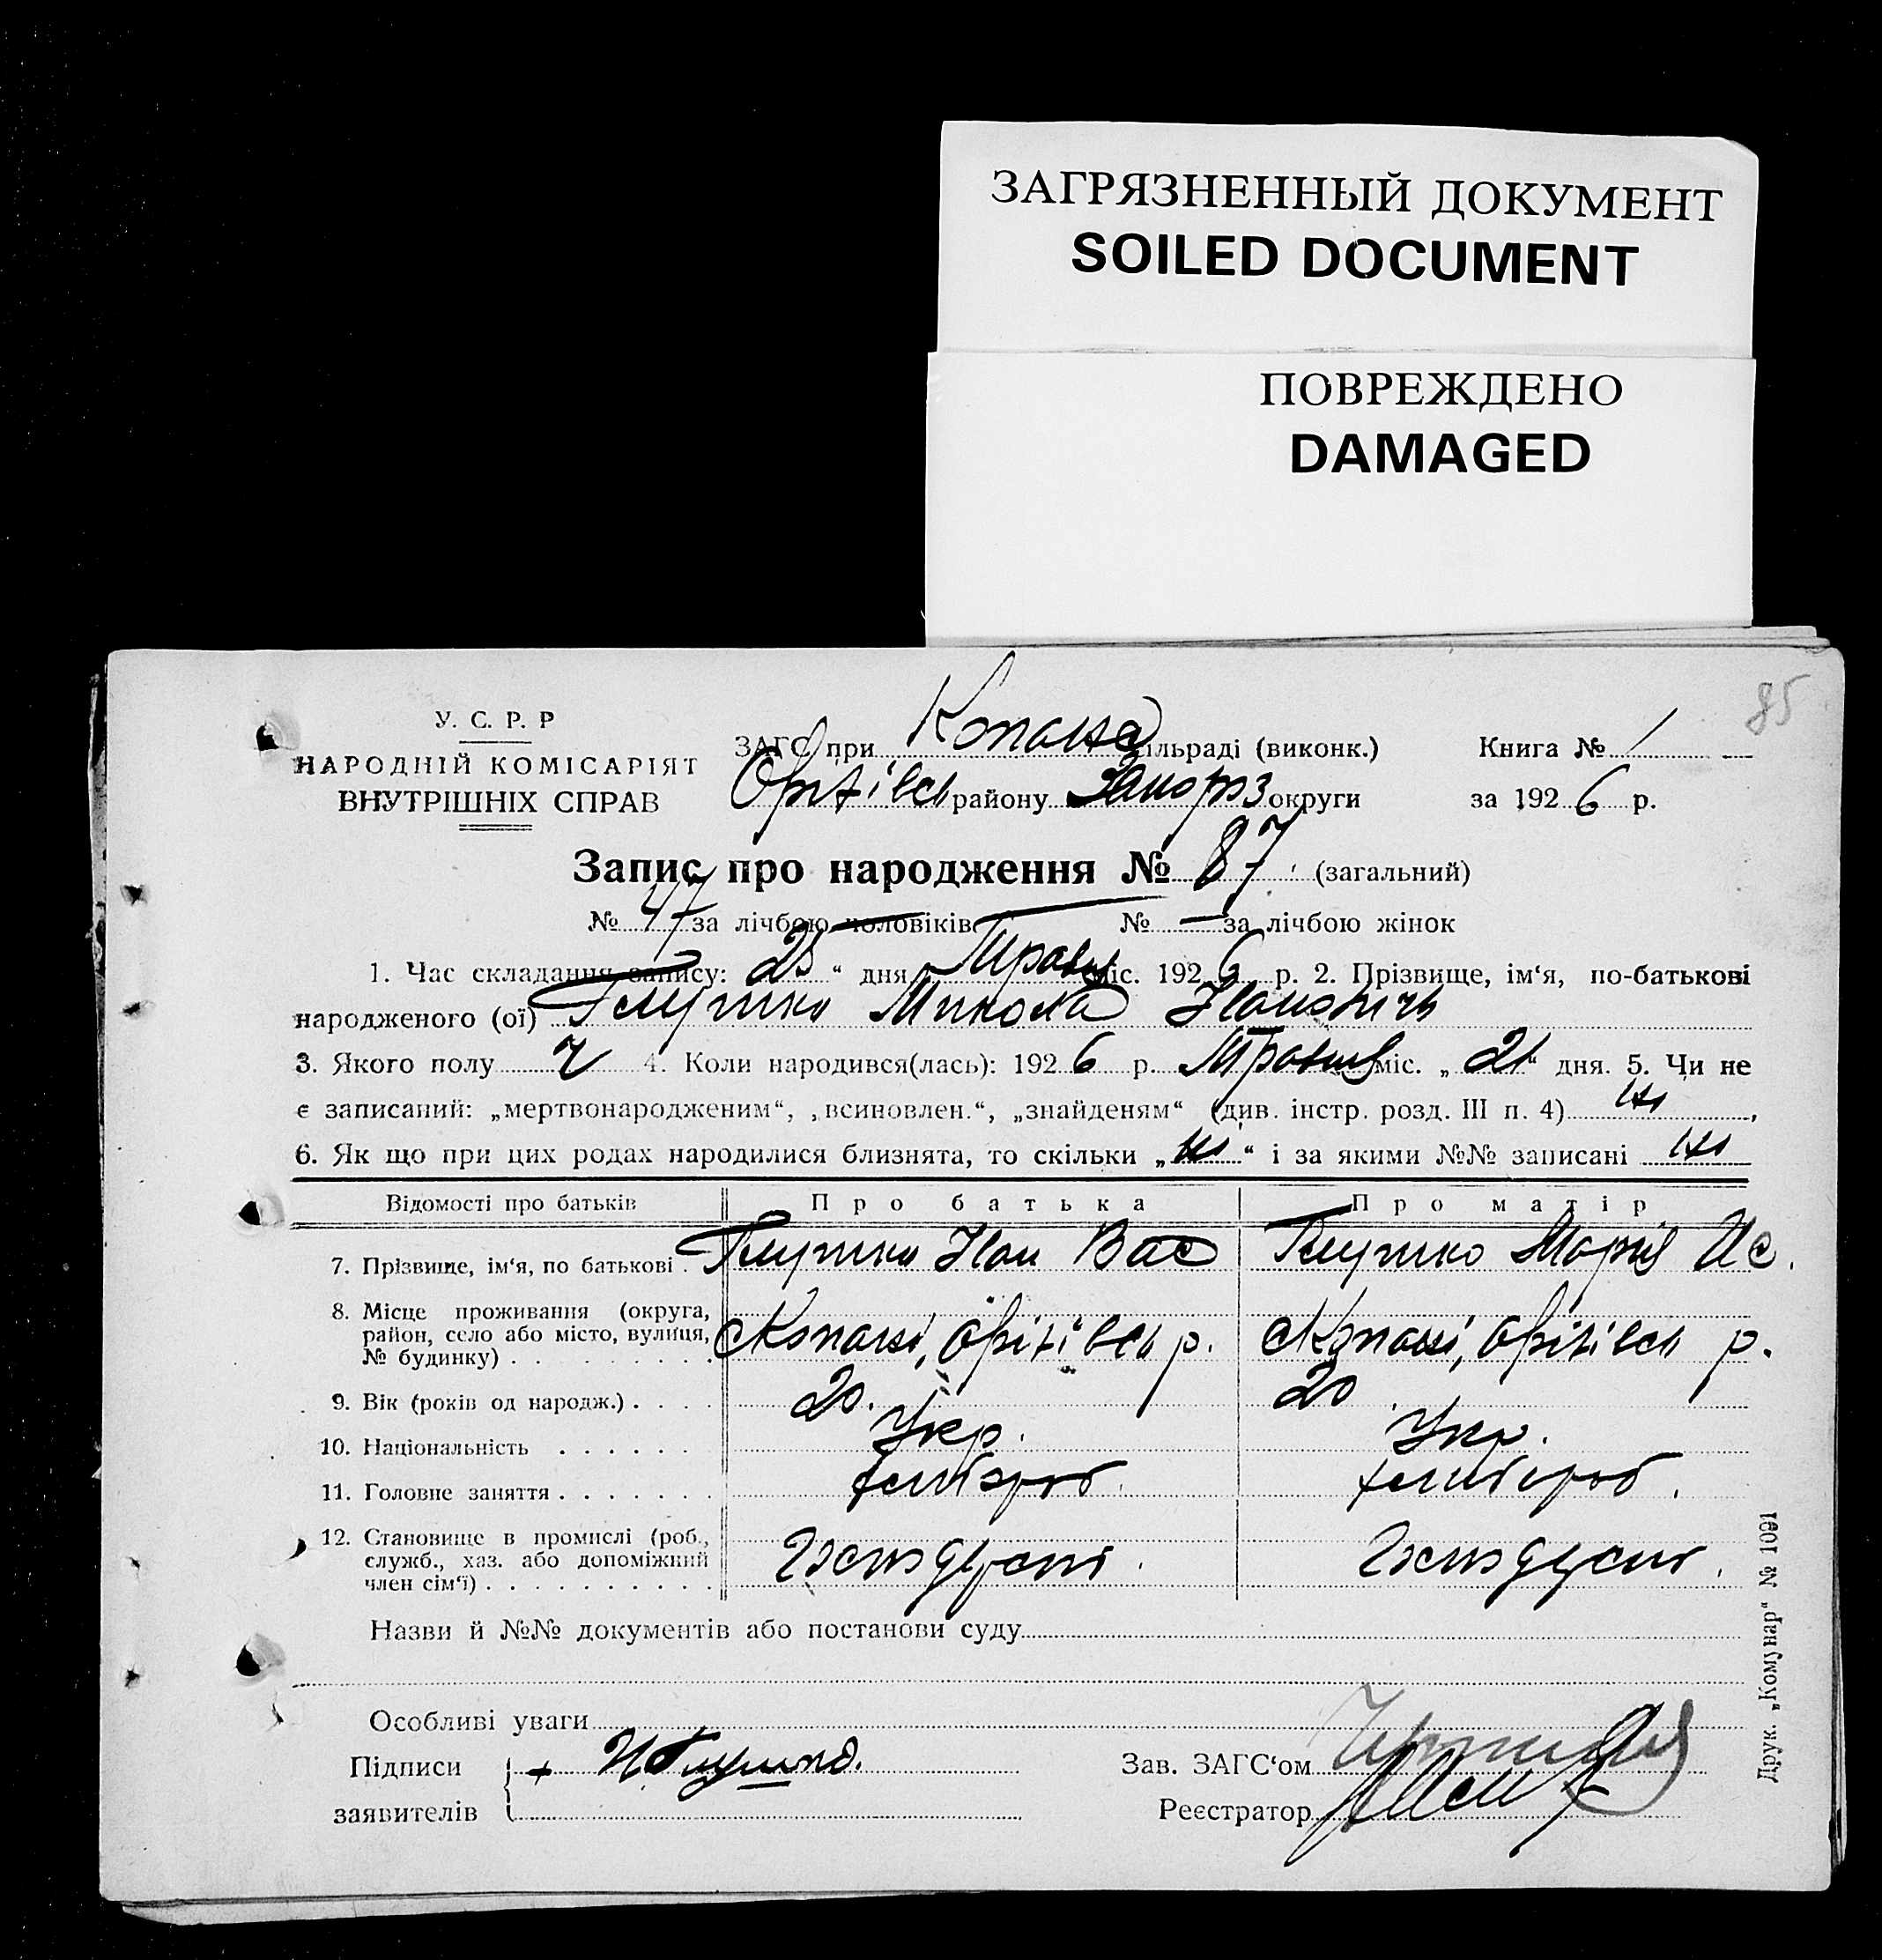 ЗАГРЯЗНЕННЫЙ ДОКУМЕНТ
SOILED DOCUMENT
ПОВРЕЖДЕНО
DAMAGED
85
У. С. Р. Р
НАРОДНІЙ КОМІСАРІЯТ
ВНУТРІШНІХ СПРАВ
ЗАГС при Копанс ільраді (виконк.) Книга № 1
Оріхівськ району Запоріз округи за 1926 р.
Запис про народження № 87 (загальний)
№ 47 за лічбою чоловіків № — за лічбою жінок
1. Час складання запису: 25 “ дня Травня міс. 1926 р. 2. Прізвище, ім‘я, по-батькові
народженого (ої) Глушко Микола Іванович
3. Якого полу ч 4. Коли народився(лась): 1926 р. Травня міс. „ 21 “ дня. 5. Чи не
є записаний: „мертвонародженим“, „всиновлен.“, „знайденям“ (див. інстр. розд. III п. 4) ні,
6. Як що при цих родах народилися близнята, то скільки „ ні “ і за якими №№ записані ні
Відомості про батьків Про батька Про матір
7. Прізвище, ім‘я, по батькові . Глушко Іван Вас Глушко Марія Ис.
8. Місце проживання (округа,
район, село або місто, вулиця,
№ будинку) . . . с Копані, Оріхівськ р. с Копані, Оріхівськ р.
9. Вік (років од народж.) . . . . 20. 20
10. Національність . . . . . . Укр. Укр.
11. Головне заняття . . . . . . . хлібороб. хлібороб.
12. Становище в промислі (роб.,
служб., хаз. або допоміжний
член сім‘ї) . . . . . . . . . .
Назви й №№ документів або постанови суду
Особливі уваги
Підписи + И Глушко. Зав. ЗАГС‘ом
заявителів Реєстратор
Друк. „Комунар“ № 1091